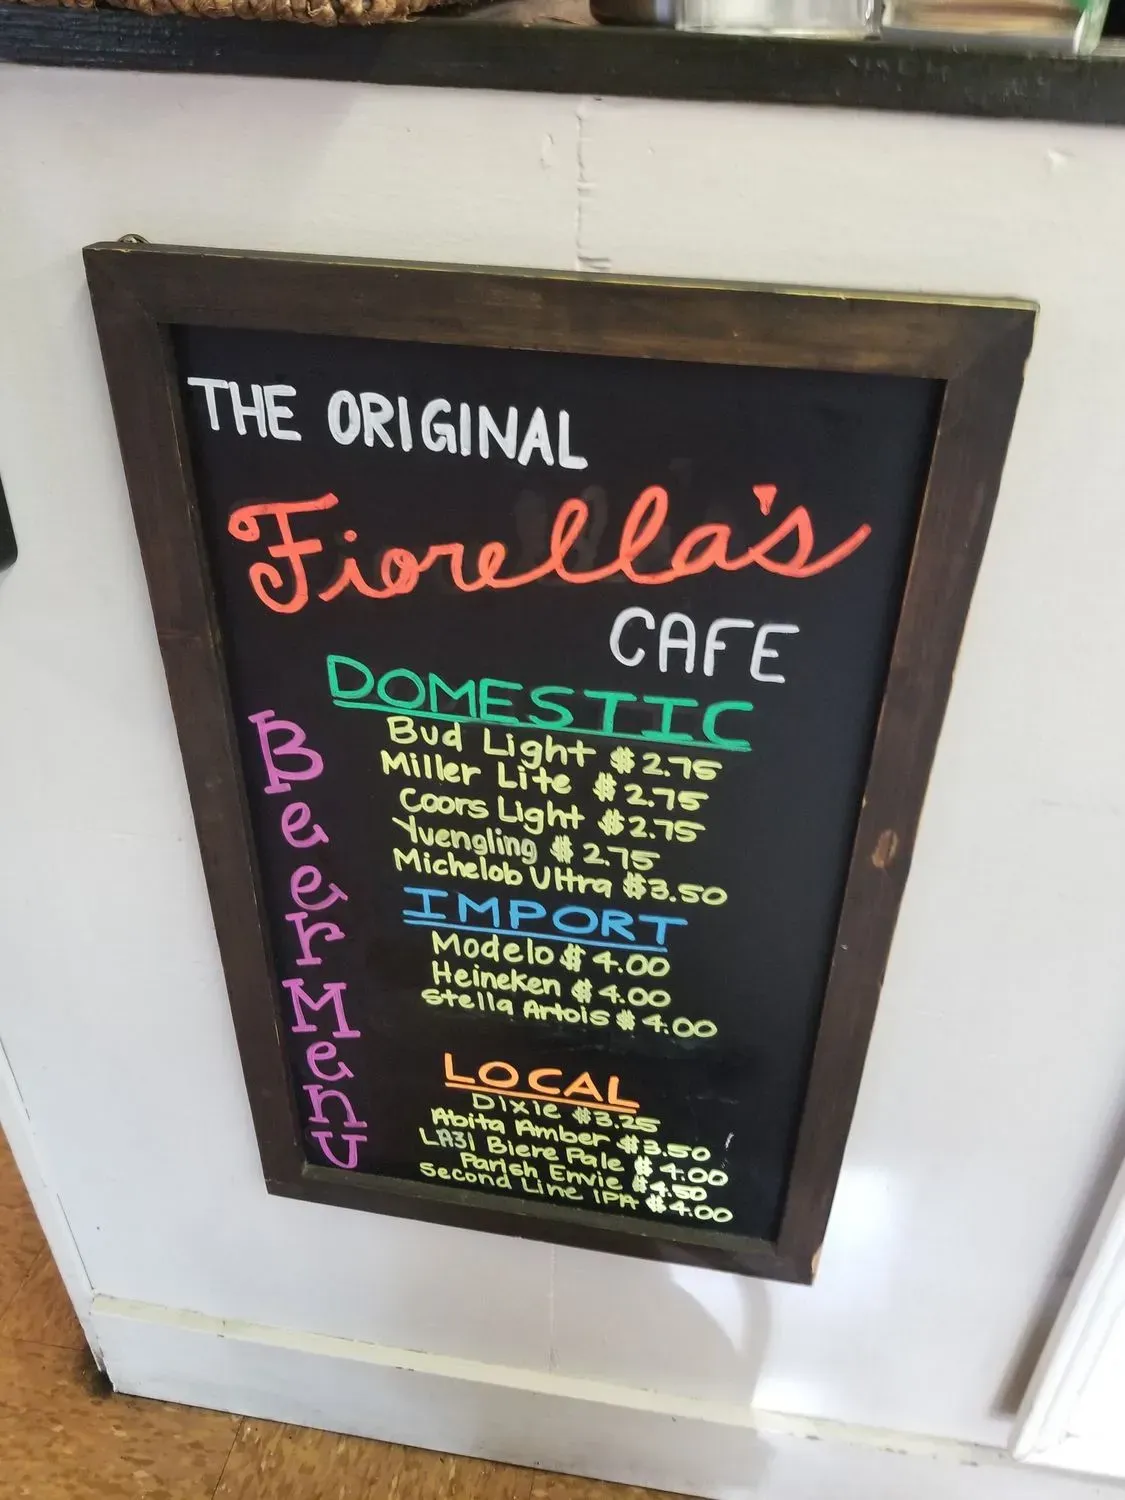 THE ORIGINAL
Fiorella's
CAFE
Beer Menu
DOMESTIC
Bud Light $2.75
Miller Lite $2.75
Coors Light $2.75
Yuengling $2.75
Michelob Ultra $3.50
IMPORT
Modelo $4.00
Heineken $4.00
Stella Artois $4.00
LOCAL
Dixie $3.25
Abita Amber $3.50
LA31 Biere Pale $4.00
Parish Envie $4.50
Second Line IPA $4.00